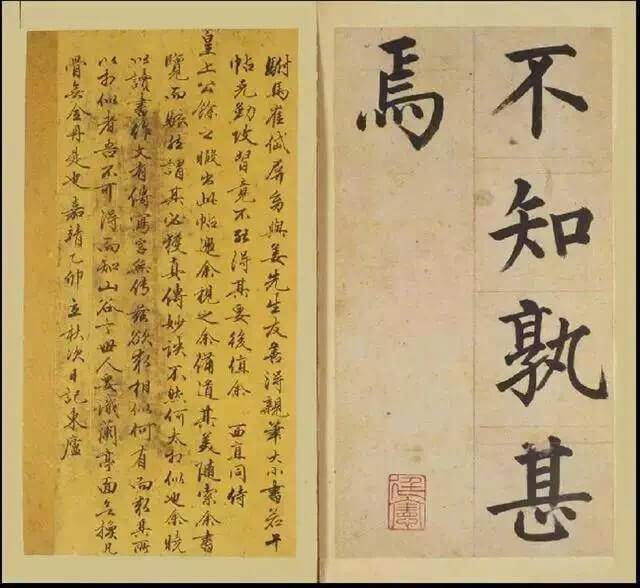 不知孰甚
焉
駙馬崔岱屏與姜先生友善得親筆大小書若干
帖先勤攻習竟不能得其要後值余 西直同侍
皇上公餘之暇出此帖過余視之余備道其美隨索余書
覽而謂其必獲真傳妙訣不然何太相似也余曉
以讀書作文有傳寫字無傳茲欲求相似何有而求其所
以相似者吾不可得而知山谷云世人蘭亭面換凡
骨無金丹是也 嘉靖乙卯立秋次日記東廬